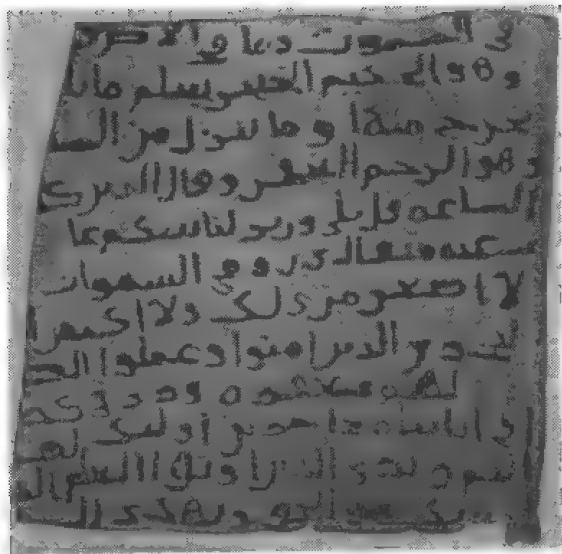 في السموت وما في الارض
وهو الحكيم الخبير يعلم ما يلـ
يخرج منها وما ينزل من السما
وهو الرحيم الغفور وقال الذين كـ
الساعه قل بلى وربي لتاتينكم عا
عنه مثقال ذره في السموات
لا اصغر من ذلك ولا اكبر ا
ليجزي الذين امنوا وعملوا الصـ
لهم مغفره ورزق كر
في اياتنا معجزين اوليك لهم
ويرى الذين اوتوا العلم الـ
ربك هو الحق ويهدي الى